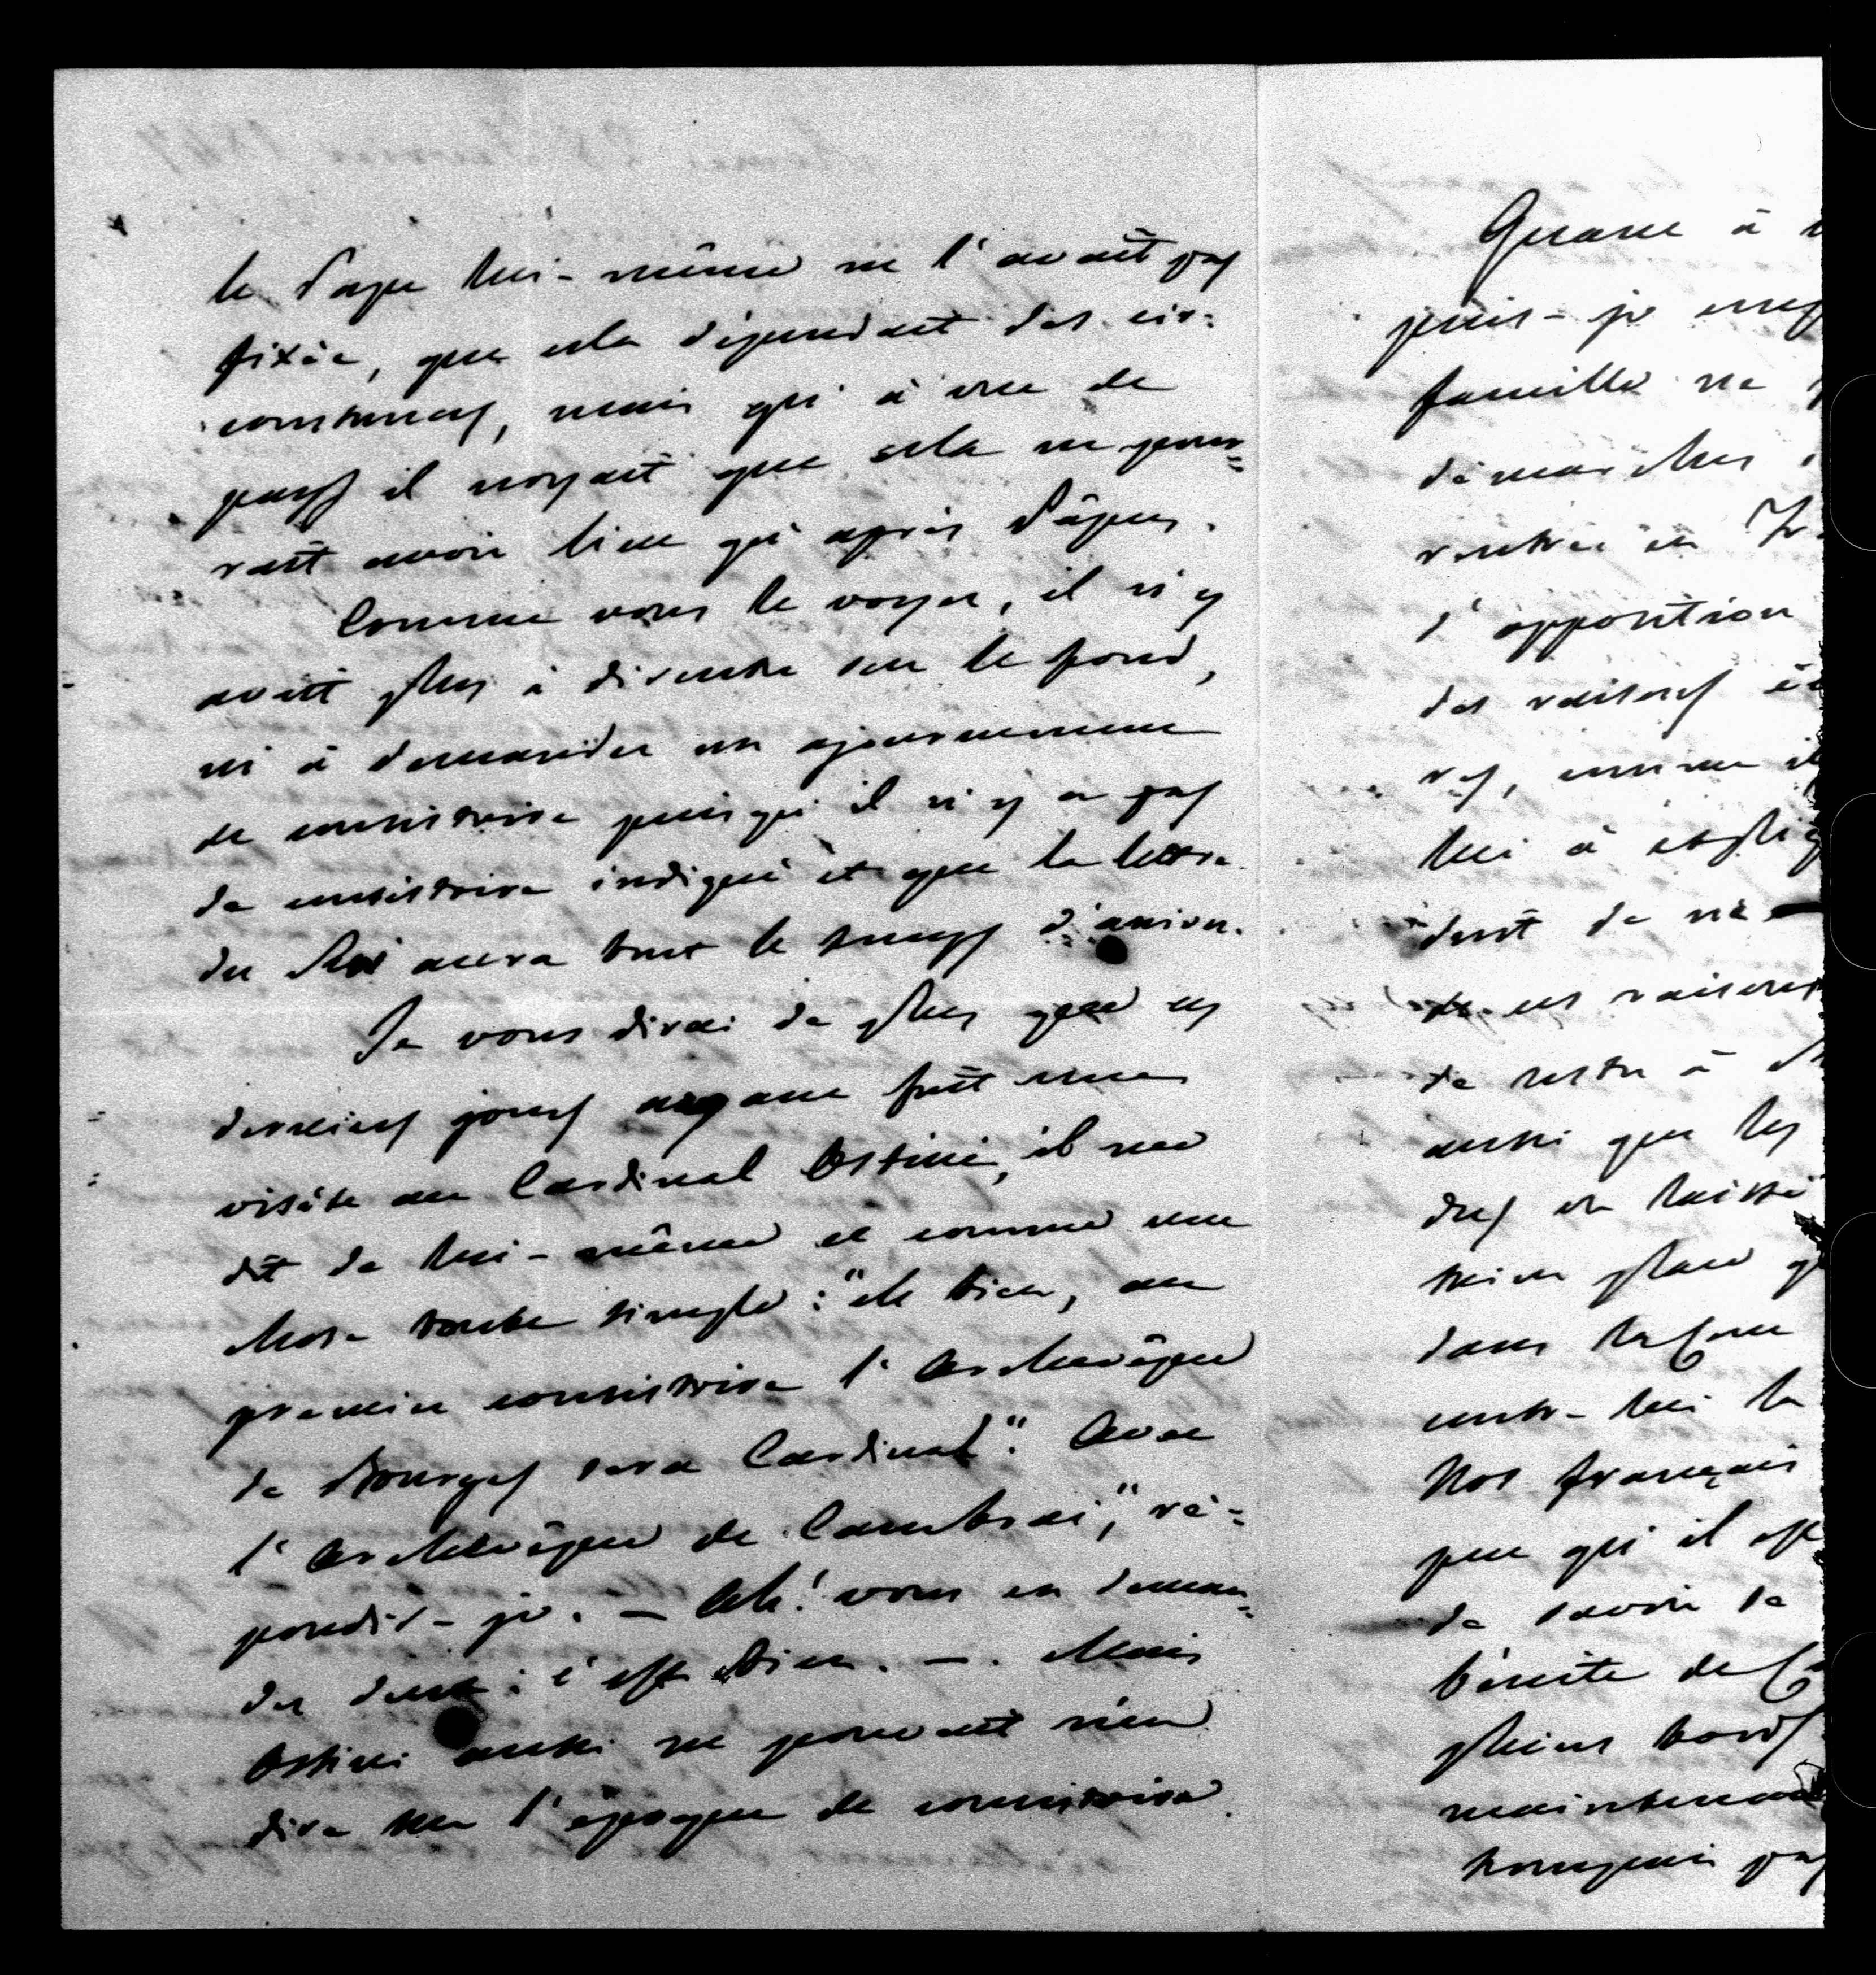 le Pape lui-même ne l'avait pas
fixée, que cela dépendait des cir-
constances, mais qu'à vue de
pays il croyait que cela ne pour-
rait avoir lieu qu'après Pâques.
Comme vous le voyez, il n'y
avait plus à discuter sur le fond,
ni à demander un ajournement
de consistoire puisqu'il n'y a pas
de consistoire indiqué et que la lettre
du Roi aura tout le temps d'arriver.
Je vous dirai de plus que ces
derniers jours ayant fait une
visite au Cardinal Ostini, il me
dit de lui-même et comme une
chose toute simple: "eh bien, au
premier consistoire l'Archevêque
de Bourges sera Cardinal". "Avec
l'Archevêque de Cambrai", ré-
pondis-je. — Ah! vous en deman-
dez deux: c'est bien. — Mais
Ostini aussi ne pouvait rien
dire sur l'époque de consistoire.
Quant à
puis-je
famille ne
démarches
rentrée en
l'opposition
des raisons
comme il
lui à
doit de
de ces raisons
de rester à
aussi que les
dus en laissé
place
dans la Cour
contre lui la
Nos français
que qu'il est
de savoir se
bénite de
pleins bords
maintenant
pas